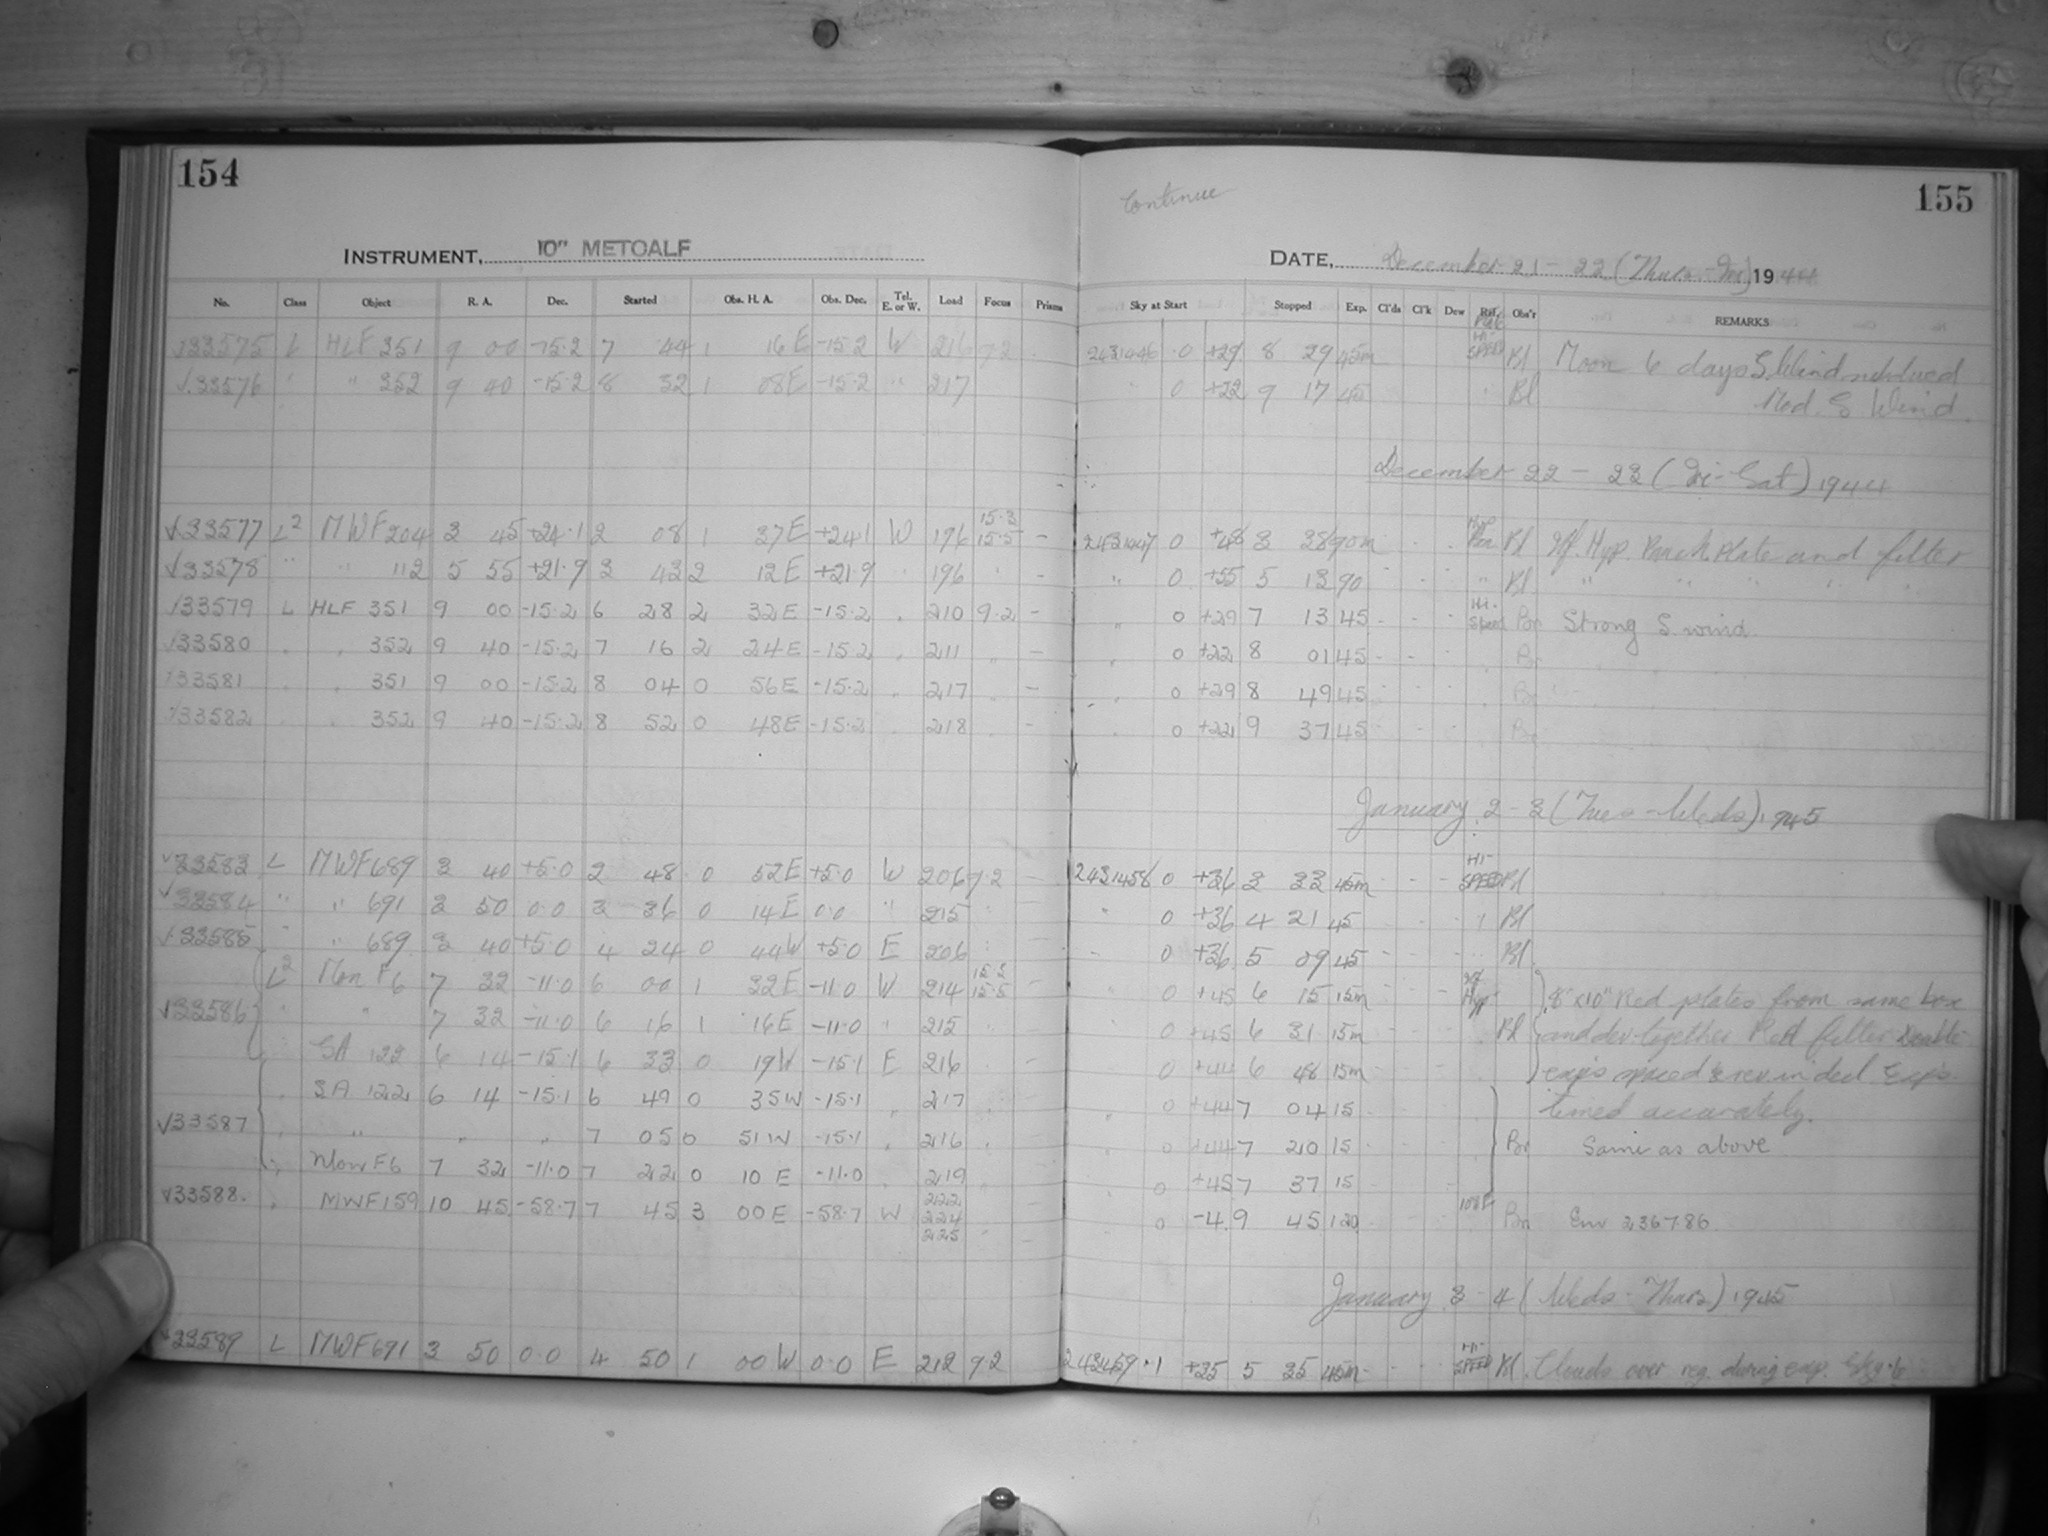 154
155
Continue
INSTRUMENT, 10" METCALF
DATE, December 21 - 22 (Thurs - Fri) 1944
No. Class Object R. A. Dec. Started Obs. H. A. Obs. Dec. Tel. E. or W. Load Focus Prisms Sky at Start Stopped Exp. Cl'ds Cl'k Dew Ref. Obs'r REMARKS
√33575 L HLF 351 9 00 -15.2 7 44 1 16 E -15.2 W 216 9.2 2431446 0 +29 8 29 45m HI-SPEED Bl Moon 6 days S. Wind
√33576 " " 352 9 40 -15.2 8 32 1 08 E -15.2 " 217 " 0 +22 9 17 45 " Bl Med. S. Wind
December 22 - 23 (Fri - Sat) 1944
√33577 L2 MWF 204 3 45 +24.1 2 08 1 37 E +24.1 W 196 15.3 15.5 - 2431447 0 +48 3 38 90m Bl Hyp. Panch Plate and filter
√33578 " " 112 5 55 +21.9 3 43 2 12 E +21.9 " 196 " - " 0 +55 5 13 90 " Bl " " " "
√33579 L HLF 351 9 00 -15.2 6 28 2 32 E -15.2 " 210 9.2 - " 0 +29 7 13 45 - - - Hi-Speed Bn Strong S. wind
√33580 " " 352 9 40 -15.2 7 16 2 24 E -15.2 " 211 " - " 0 +22 8 01 45 - - - Bn
√33581 " " 351 9 00 -15.2 8 04 0 56 E -15.2 " 217 " - " 0 +29 8 49 45 Bn
√33582 " " 352 9 40 -15.2 8 52 0 48 E -15.2 " 218 " - " 0 +22 9 37 45 Bn
January 2 - 3 (Tues - Weds) 1945
√33583 L MWF 689 3 40 +5.0 2 48 0 52 E +5.0 W 206 9.2 - 2431458 0 +36 3 33 45m - - - HI-SPEED Bl
√33584 " " 691 3 50 0.0 3 36 0 14 E 0.0 " 215 " 0 +36 4 21 45 " Bl
√33585 " " 689 3 40 +5.0 4 24 0 44 W +5.0 E 206 " 0 +36 5 09 45 " Bl
L2 Mon F6 7 32 -11.0 6 00 1 32 E -11.0 W 214 15.3 15.5 " 0 +45 6 15 15m Hyp 8" x 10" Red plates from same box
√33586 " " 7 32 -11.0 6 16 1 16 E -11.0 " 215 " 0 +45 6 31 15m Bl and dev. together Red filter Double
SA 122 6 14 -15.1 6 33 0 19 W -15.1 E 216 " 0 +44 6 48 15m exps spaced & rewinded. Exps.
SA 122 6 14 -15.1 6 49 0 35 W -15.1 " 217 " 0 +44 7 04 15 timed accurately.
√33587 " " " " 7 05 0 51 W -15.1 " 216 " 0 +44 7 20 15 Bn Same as above
" Mon F6 7 32 -11.0 7 22 0 10 E -11.0 " 219 " 0 +45 7 37 15
√33588. " MWF 159 10 45 -58.7 7 45 3 00 E -58.7 W 222 224 225 " 0 -4 9 45 120 103E Bn Em 236786
January 3 - 4 (Weds - Thurs) 1945
√33589 L MWF 691 3 50 0.0 4 50 1 00 W 0.0 E 212 9.2 2431459 .1 +35 5 35 45m - - - HI-SPEED Bl. Clouds over reg. during exp. Sky